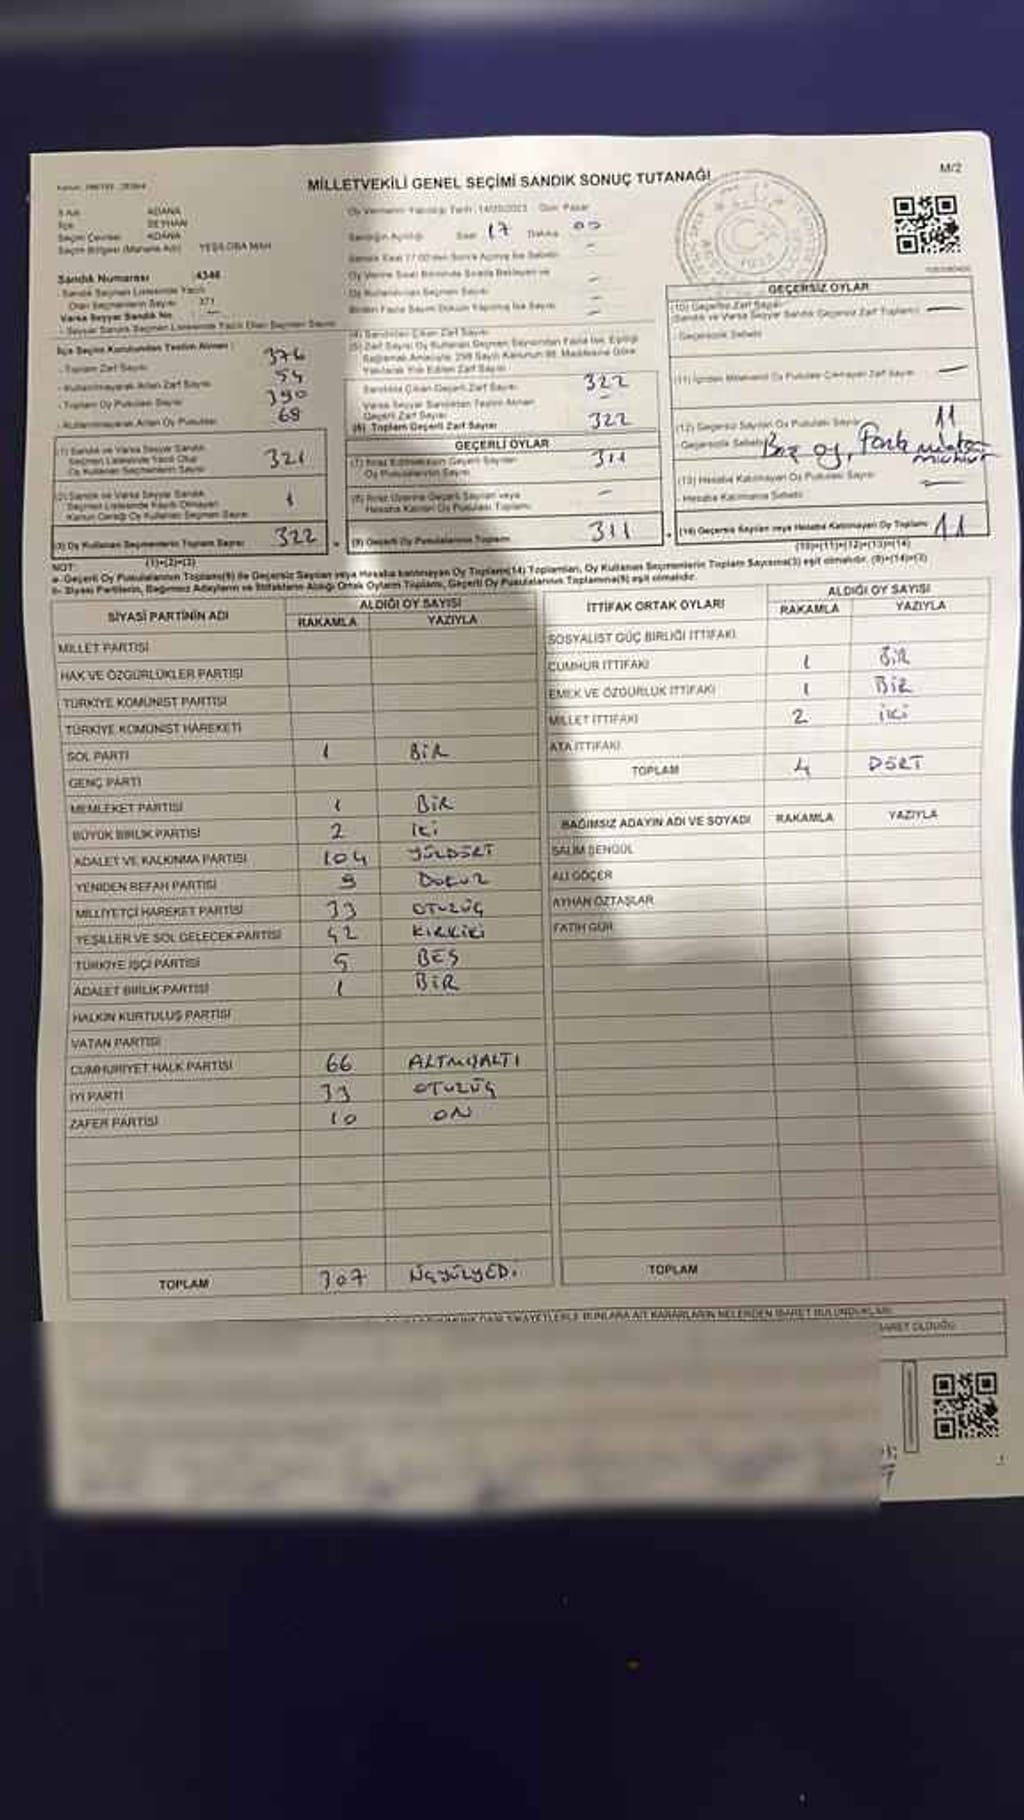 MİLLETVEKİLİ GENEL SEÇİMİ SANDIK SONUÇ TUTANAĞI
M/2
İl Adı ADANA
İlçe SEYHAN
Seçim Çevresi ADANA
Seçim Bölgesi (Mahalle Adı) YEŞİLOBA MAH
Sandık Numarası 4346
- Sandık Seçmen Listesinde Yazılı
Olan Seçmenlerin Sayısı 371
Varsa Seyyar Sandık No
- Seyyar Sandık Seçmen Listesinde Yazılı Olan Seçmen Sayısı
İlçe Seçim Kurulundan Teslim Alınan :
- Toplam Zarf Sayısı 376
- Kullanılmayarak Artan Zarf Sayısı 54
- Toplam Oy Pusulası Sayısı 390
- Kullanılmayarak Artan Oy Pusulası 68
(1) Sandık ve Varsa Seyyar Sandık
Seçmen Listesinde Yazılı Olup
Oy Kullanan Seçmenlerin Sayısı 321
(2) Sandık ve Varsa Seyyar Sandık
Seçmen Listesinde Yazılı Olmayan
Kanun Gereği Oy Kullanan Seçmen Sayısı 1
(3) Oy Kullanan Seçmenlerin Toplam Sayısı 322
(1)+(2)=(3)
Oy Vermenin Yapıldığı Tarih : 14/05/2023 Gün: Pazar
Sandığın Açıldığı Saat 17 Dakika 00
Sandık Saat 17.00'den Sonra Açılmış İse Sebebi -
Oy Verme Saati Bitiminde Sırada Bekleyen ve
Oy Kullandırılan Seçmen Sayısı -
Birden Fazla Sayım Döküm Yapılmış İse Sayısı -
(4) Sandıktan Çıkan Zarf Sayısı
(5) Zarf Sayısı Oy Kullanan Seçmen Sayısından Fazla İse, Eşitliği
Sağlamak Amacıyla, 298 Sayılı Kanunun 98. Maddesine Göre
Yakılarak Yok Edilen Zarf Sayısı
Sandıkta Çıkan Geçerli Zarf Sayısı 322
Varsa Seyyar Sandıktan Teslim Alınan
Geçerli Zarf Sayısı -
(6) Toplam Geçerli Zarf Sayısı 322
GEÇERLİ OYLAR
(7) İtiraz Edilmeksizin Geçerli Sayılan
Oy Pusulalarının Sayısı 311
(8) İtiraz Üzerine Geçerli Sayılan veya
Hesaba Katılan Oy Pusulası Toplamı -
(9) Geçerli Oy Pusulalarının Toplamı 311
GEÇERSİZ OYLAR
(10) Geçersiz Zarf Sayısı
(Sandık ve Varsa Seyyar Sandık Geçersiz Zarf Toplamı) —
- Geçersizlik Sebebi
(11) İçinden Milletvekili Oy Pusulası Çıkmayan Zarf Sayısı —
(12) Geçersiz Sayılan Oy Pusulası Sayısı 11
Geçersizlik Sebebi Boş oy, Fazla
(13) Hesaba Katılmayan Oy Pusulası Sayısı —
- Hesaba Katılmama Sebebi
(14) Geçersiz Sayılan veya Hesaba Katılmayan Oy Toplamı 11
(10)+(11)+(12)+(13)=(14)
NOT:
a- Geçerli Oy Pusulalarının Toplamı(9) ile Geçersiz Sayılan veya Hesaba katılmayan Oy Toplamı(14) Toplamları, Oy Kullanan Seçmenlerin Toplam Sayısına(3) eşit olmalıdır. (9)+(14)=(3)
b- Siyasi Partilerin, Bağımsız Adayların ve İttifakların Aldığı Ortak Oyların Toplamı, Geçerli Oy Pusulalarının Toplamına(9) eşit olmalıdır.
SİYASİ PARTİNİN ADI ALDIĞI OY SAYISI
RAKAMLA YAZIYLA
MİLLET PARTİSİ
HAK VE ÖZGÜRLÜKLER PARTİSİ
TÜRKİYE KOMÜNİST PARTİSİ
TÜRKİYE KOMÜNİST HAREKETİ
SOL PARTİ 1 BİR
GENÇ PARTİ
MEMLEKET PARTİSİ 1 BİR
BÜYÜK BİRLİK PARTİSİ 2 İKİ
ADALET VE KALKINMA PARTİSİ 104 YÜZDÖRT
YENİDEN REFAH PARTİSİ 9 DOKUZ
MİLLİYETÇİ HAREKET PARTİSİ 33 OTUZÜÇ
YEŞİLLER VE SOL GELECEK PARTİSİ 42 KIRKİKİ
TÜRKİYE İŞÇİ PARTİSİ 5 BEŞ
ADALET BİRLİK PARTİSİ 1 BİR
HALKIN KURTULUŞ PARTİSİ
VATAN PARTİSİ
CUMHURİYET HALK PARTİSİ 66 ALTMIŞALTI
İYİ PARTİ 33 OTUZÜÇ
ZAFER PARTİSİ 10 ON
TOPLAM 307 ÜÇYÜZYEDİ
İTTİFAK ORTAK OYLARI ALDIĞI OY SAYISI
RAKAMLA YAZIYLA
SOSYALİST GÜÇ BİRLİĞİ İTTİFAKI
CUMHUR İTTİFAKI 1 BİR
EMEK VE ÖZGÜRLÜK İTTİFAKI 1 BİR
MİLLET İTTİFAKI 2 İKİ
ATA İTTİFAKI
TOPLAM 4 DÖRT
BAĞIMSIZ ADAYIN ADI VE SOYADI RAKAMLA YAZIYLA
SALİM ŞENGÜL
ALİ GÖÇER
AYHAN ÖZTAŞLAR
FATİH GÜR
TOPLAM
BUNLARA AİT KARARLARIN NELERDEN İBARET BULUNDUKLARI